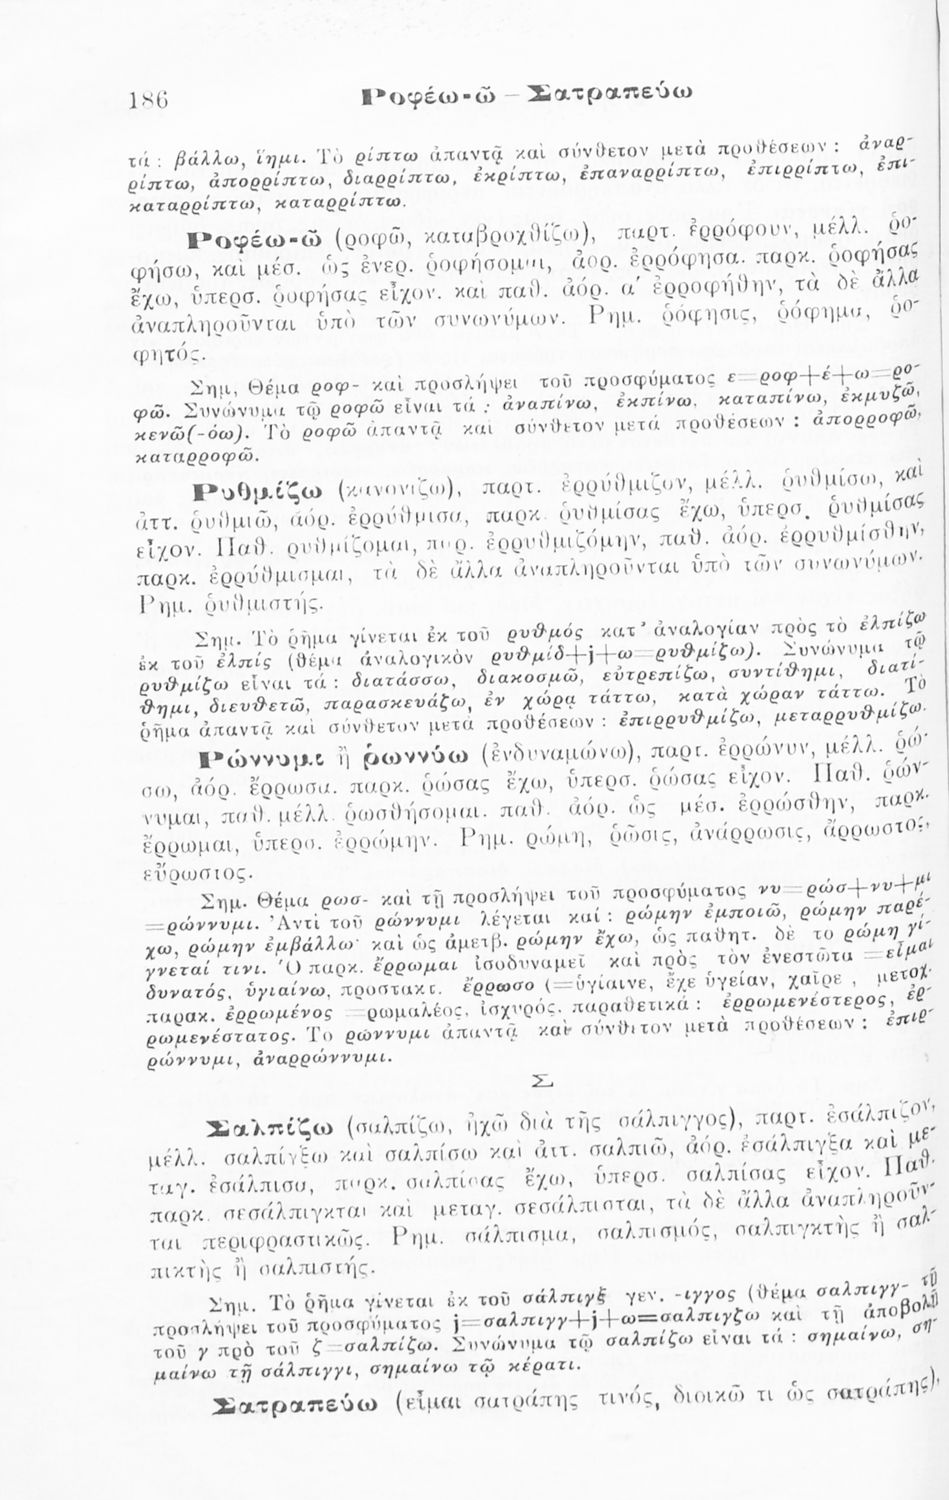 186 Ροφέω-ῶ – Σατραπεύω
τά: βάλλω, ἵημι. Τὸ ρίπτω ἀπαντᾷ καὶ σύνθετον μετὰ προθέσεων: ἀναρ-
ρίπτω, ἀπορρίπτω, διαρρίπτω, ἐκρίπτω, ἐπαναρρίπτω, ἐπιρρίπτω, ἐπι-
καταρρίπτω, καταρρίπτω.
Ροφέω-ῶ (ροφῶ, καταβροχθίζω), παρτ. ἐρρόφουν, μέλλ. ῥο-
φήσω, καὶ μέσ. ὡς ἐνερ. ῥοφήσομαι, ἀορ. ἐρρόφησα. παρκ. ῥοφήσας
ἔχω, ὑπερσ. ῥοφήσας εἶχον. καὶ παθ. ἀόρ. α' ἐρροφήθην, τὰ δὲ ἄλλα
ἀναπληροῦνται ὑπὸ τῶν συνωνύμων. Ρημ. ῥόφησις, ῥόφημα, ῥο-
φητός.
Σημ. Θέμα ροφ- καὶ προσλήψει τοῦ προσφύματος ε=ροφ+έ+ω=ρο-
φῶ. Συνώνυμα τῷ ροφῶ εἶναι τά: ἀναπίνω, ἐκπίνω, καταπίνω, ἐκμυζῶ,
κενῶ(-όω). Τὸ ροφῶ ἀπαντᾷ καὶ σύνθετον μετὰ προθέσεων: ἀπορροφῶ,
καταρροφῶ.
Ρυθμίζω (κανονίζω), παρτ. ἐρρύθμιζον, μέλλ. ῥυθμίσω, καὶ
ἀττ. ῥυθμιῶ, ἀόρ. ἐρρύθμισα, παρκ. ῥυθμίσας ἔχω, ὑπερσ. ῥυθμίσας
εἶχον. Παθ. ρυθμίζομαι, παρ. ἐρρυθμιζόμην, παθ. ἀόρ. ἐρρυθμίσθην,
παρκ. ἐρρύθμισμαι, τὰ δὲ ἄλλα ἀναπληροῦνται ὑπὸ τῶν συνωνύμων.
Ρημ. ῥυθμιστής.
Σημ. Τὸ ῥῆμα γίνεται ἐκ τοῦ ρυθμός κατ' ἀναλογίαν πρὸς τὸ ἐλπίζω
ἐκ τοῦ ἐλπίς (θέμα ἀναλογικὸν ρυθμίδ+j+ω=ρυθμίζω). Συνώνυμα τῷ
ρυθμίζω εἶναι τά: διατάσσω, διακοσμῶ, εὐτρεπίζω, συντίθημι, διατί-
θημι, διευθετῶ, παρασκευάζω, ἐν χώρᾳ τάττω, κατὰ χώραν τάττω. Τὸ
ῥῆμα ἀπαντᾷ καὶ σύνθετον μετὰ προθέσεων: ἐπιρρυθμίζω, μεταρρυθμίζω.
Ρώννυμι ἢ ῥωννύω (ἐνδυναμώνω), παρτ. ἐρρώνυν, μέλλ. ῥώ-
σω, ἀόρ. ἔρρωσα. παρκ. ῥώσας ἔχω, ὑπερσ. ῥώσας εἶχον. Παθ. ῥών-
νυμαι, παθ. μέλλ. ῥωσθήσομαι. παθ. ἀόρ. ὡς μέσ. ἐρρώσθην, παρκ.
ἔρρωμαι, ὑπερσ. ἐρρώμην. Ρημ. ρώμη, ῥῶσις, ἀνάρρωσις, ἄρρωστος,
εὔρωστος.
Σημ. Θέμα ρωσ- καὶ τῇ προσλήψει τοῦ προσφύματος νυ=ρώσ+νυ+μι
=ρώννυμι. Ἀντὶ τοῦ ρώννυμι λέγεται καί: ρώμην ἐμποιῶ, ρώμην παρέ-
χω, ρώμην ἐμβάλλω· καὶ ὡς ἀμετβ. ρώμην ἔχω, ὡς παθητ. δὲ το ρώμη γί-
γνεταί τινι. Ὁ παρκ. ἔρρωμαι ἰσοδυναμεῖ καὶ πρὸς τὸν ἐνεστῶτα =εἶμαι
δυνατός, ὑγιαίνω, προστακτ. ἔρρωσο (=ὑγίαινε, ἔχε ὑγείαν, χαῖρε), μετοχ.
παρακ. ἐρρωμένος =ρωμαλέος, ἰσχυρός. παραθετικά: ἐρρωμενέστερος, ἐρ-
ρωμενέστατος. Το ρώννυμι ἀπαντᾷ καὶ σύνθετον μετὰ προθέσεων: ἐπιρ-
ρώννυμι, ἀναρρώννυμι.
Σ
Σαλπίζω (σαλπίζω, ἠχῶ διὰ τῆς σάλπιγγος), παρτ. ἐσάλπιζον,
μέλλ. σαλπίγξω καὶ σαλπίσω καὶ ἀττ. σαλπιῶ, ἀόρ. ἐσάλπιγξα καὶ με-
ταγ. ἐσάλπισα, παρκ. σαλπίσας ἔχω, ὑπερσ. σαλπίσας εἶχον. Παθ.
παρκ. σεσάλπιγκται καὶ μεταγ. σεσάλπισται, τὰ δὲ ἄλλα ἀναπληροῦν-
ται περιφραστικῶς. Ρημ. σάλπισμα, σαλπισμός, σαλπιγκτὴς ἢ σαλ-
πικτὴς ἢ σαλπιστής.
Σημ. Τὸ ῥῆμα γίνεται ἐκ τοῦ σάλπιγξ γεν. -ιγγος (θέμα σαλπιγγ- τῇ
προσλήψει τοῦ προσφύματος j=σαλπιγγ+j+ω=σαλπιγζω καὶ τῇ ἀποβολῇ
τοῦ γ πρὸ τοῦ ζ=σαλπίζω. Συνώνυμα τῷ σαλπίζω εἶναι τά: σημαίνω, ση-
μαίνω τῇ σάλπιγγι, σημαίνω τῷ κέρατι.
Σατραπεύω (εἶμαι σατράπης τινός, διοικῶ τι ὡς σατράπης),